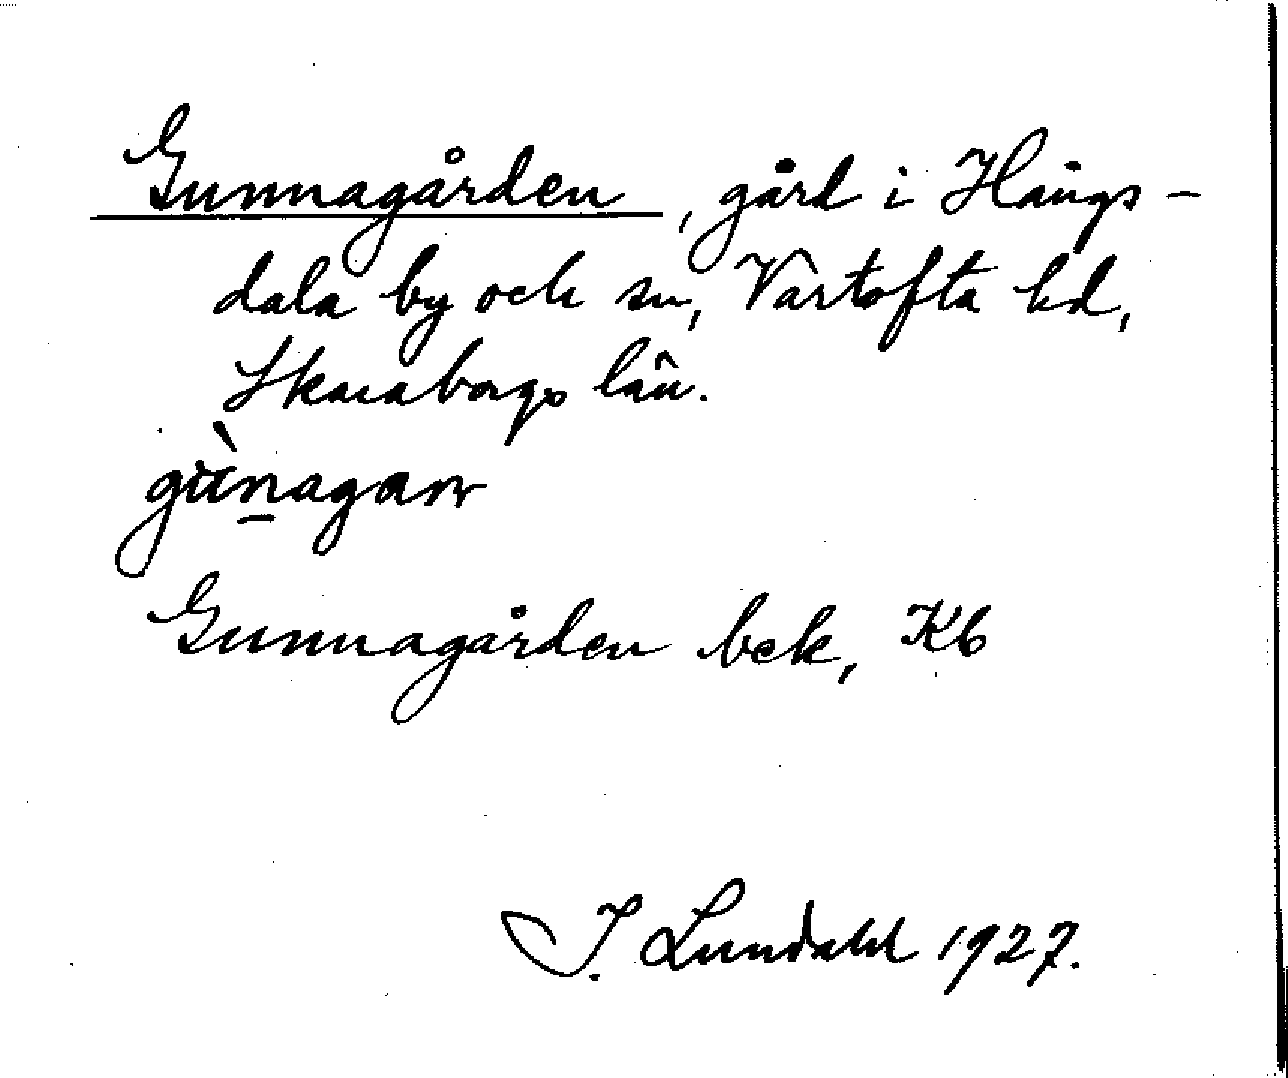 Gunnagården, gård i Hångs-
dala by och sn, Vartofta hd,
Skaraborgs län.
gùnagaɴ
Gunnagården bek, Kb
I. Lundahl 1927.